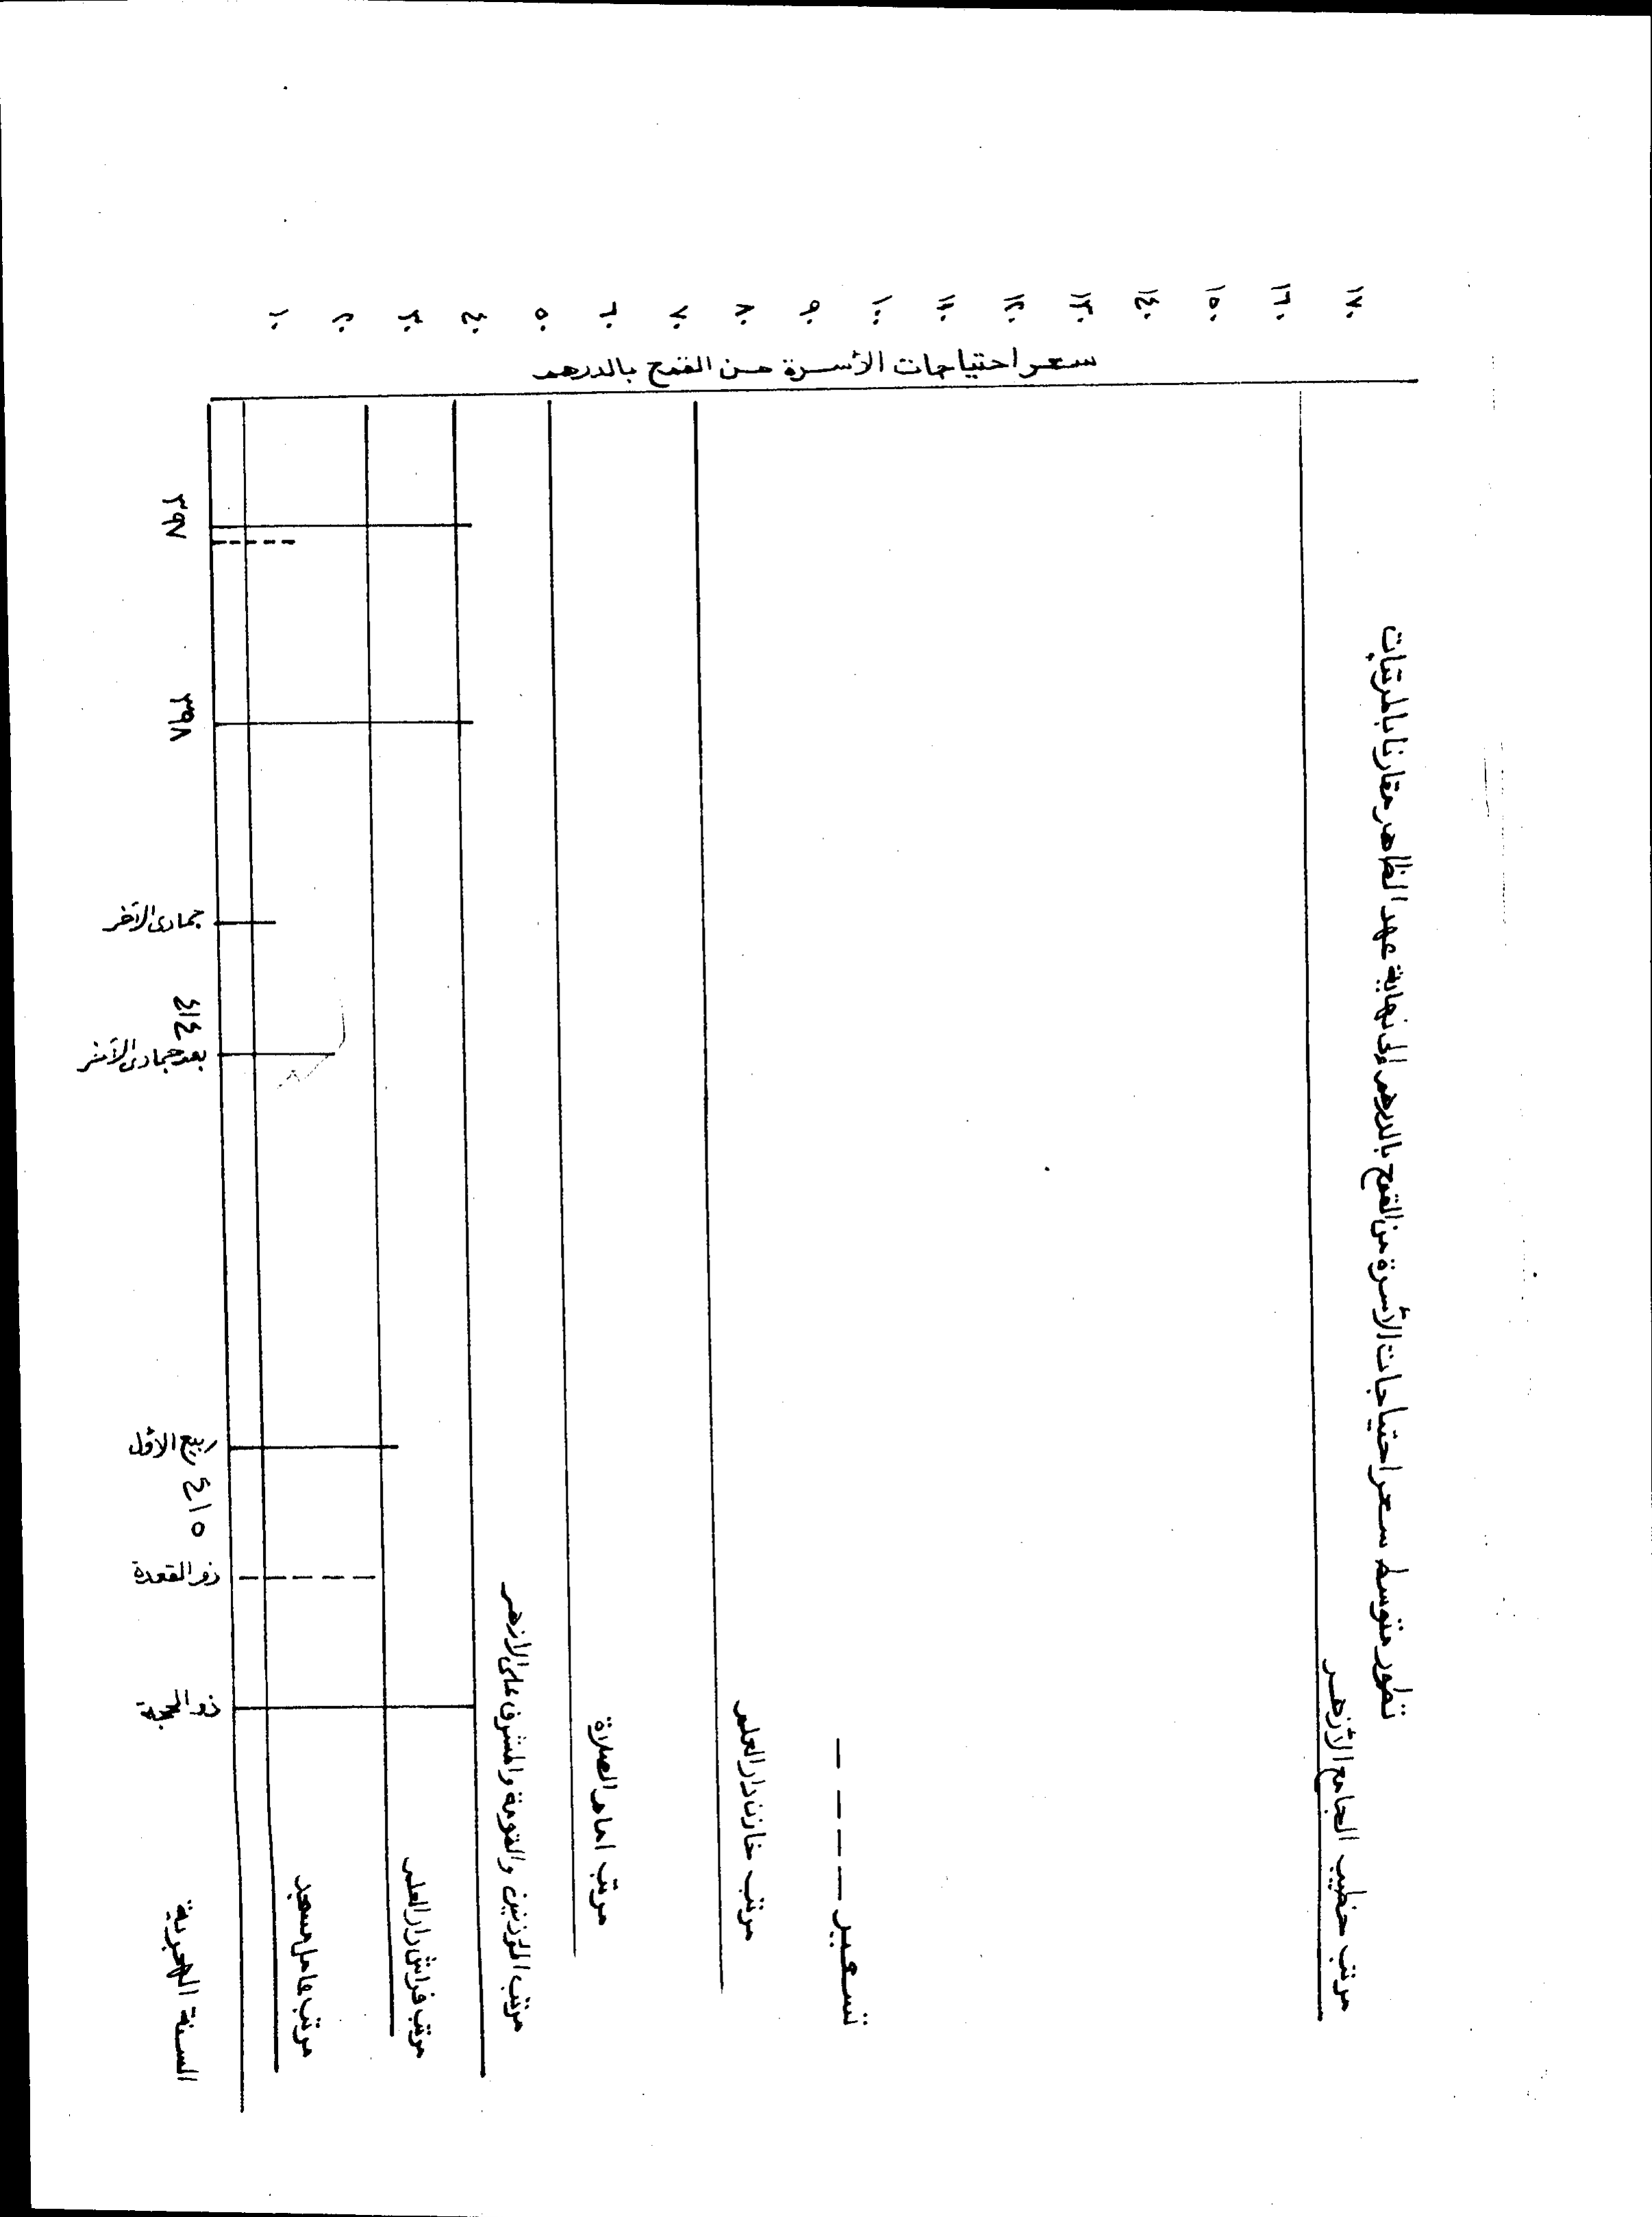 تطور متوسط سعر احتياجات الأسرة من القمح بالدرهم إلى نهاية عهد الظاهر مقارنا بالمرتبات
سعر احتياجات الأسرة من القمح بالدرهم
١٧٠
١٦٠
١٥٠
١٤٠
١٣٠
١٢٠
١١٠
١٠٠
٩٠
٨٠
٧٠
٦٠
٥٠
٤٠
٣٠
٢٠
١٠
مرتب خطيب الجامع الأزهر
تسعير
مرتب خازن دار العلم
مرتب امام الصلاة
مرتب المؤذنين والقومة والمشرف على الازهر
مرتب فراش دار العلم
مرتب عامل مسجد
٣٩٧
٣٩٨
جمادى الآخر
٤١٤
بعد جمادى الآخر
ربيع الأول
٤١٥
ذو القعدة
ذو الحجة
السنة الهجرية